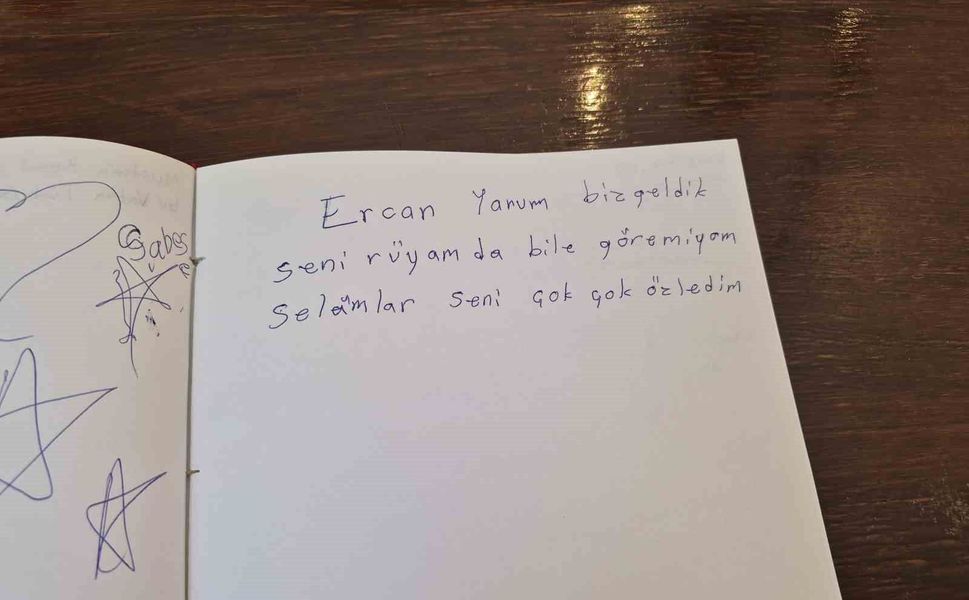 Ercan Yanım biz geldik
seni rüyam da bile göremiyom
Selâmlar seni çok çok özledim